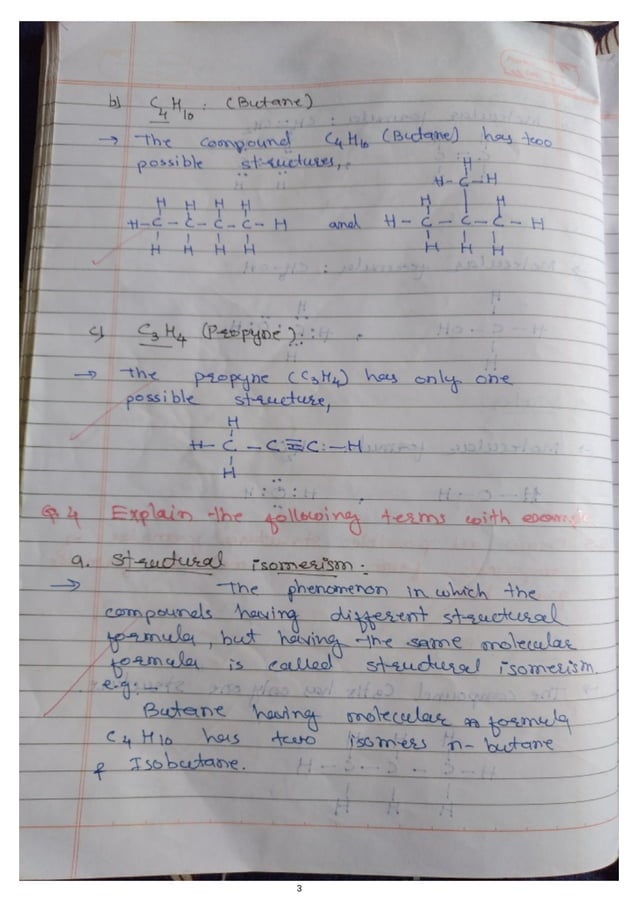 b) C4H10 : (Butane)
→ The compound C4H10 (Butane) has two
possible structures,
H
H-C-H
H H H H
H H
H-C-C-C-C-H and H-C-C-C-H
H H H H
H H H
c) C3H4 (Propyne):
→ The propyne (C3H4) has only one
possible structure,
H
H-C-C≡C:-H
H
Q.4 Explain the following terms with example
a. Structural isomerism:
→ The phenomenon in which the
compounds having different structural
formula, but having the same molecular
formula is called structural isomerism.
e.g:-
Butane having molecular formula
C4H10 has two isomers n-butane
& Isobutane.
3